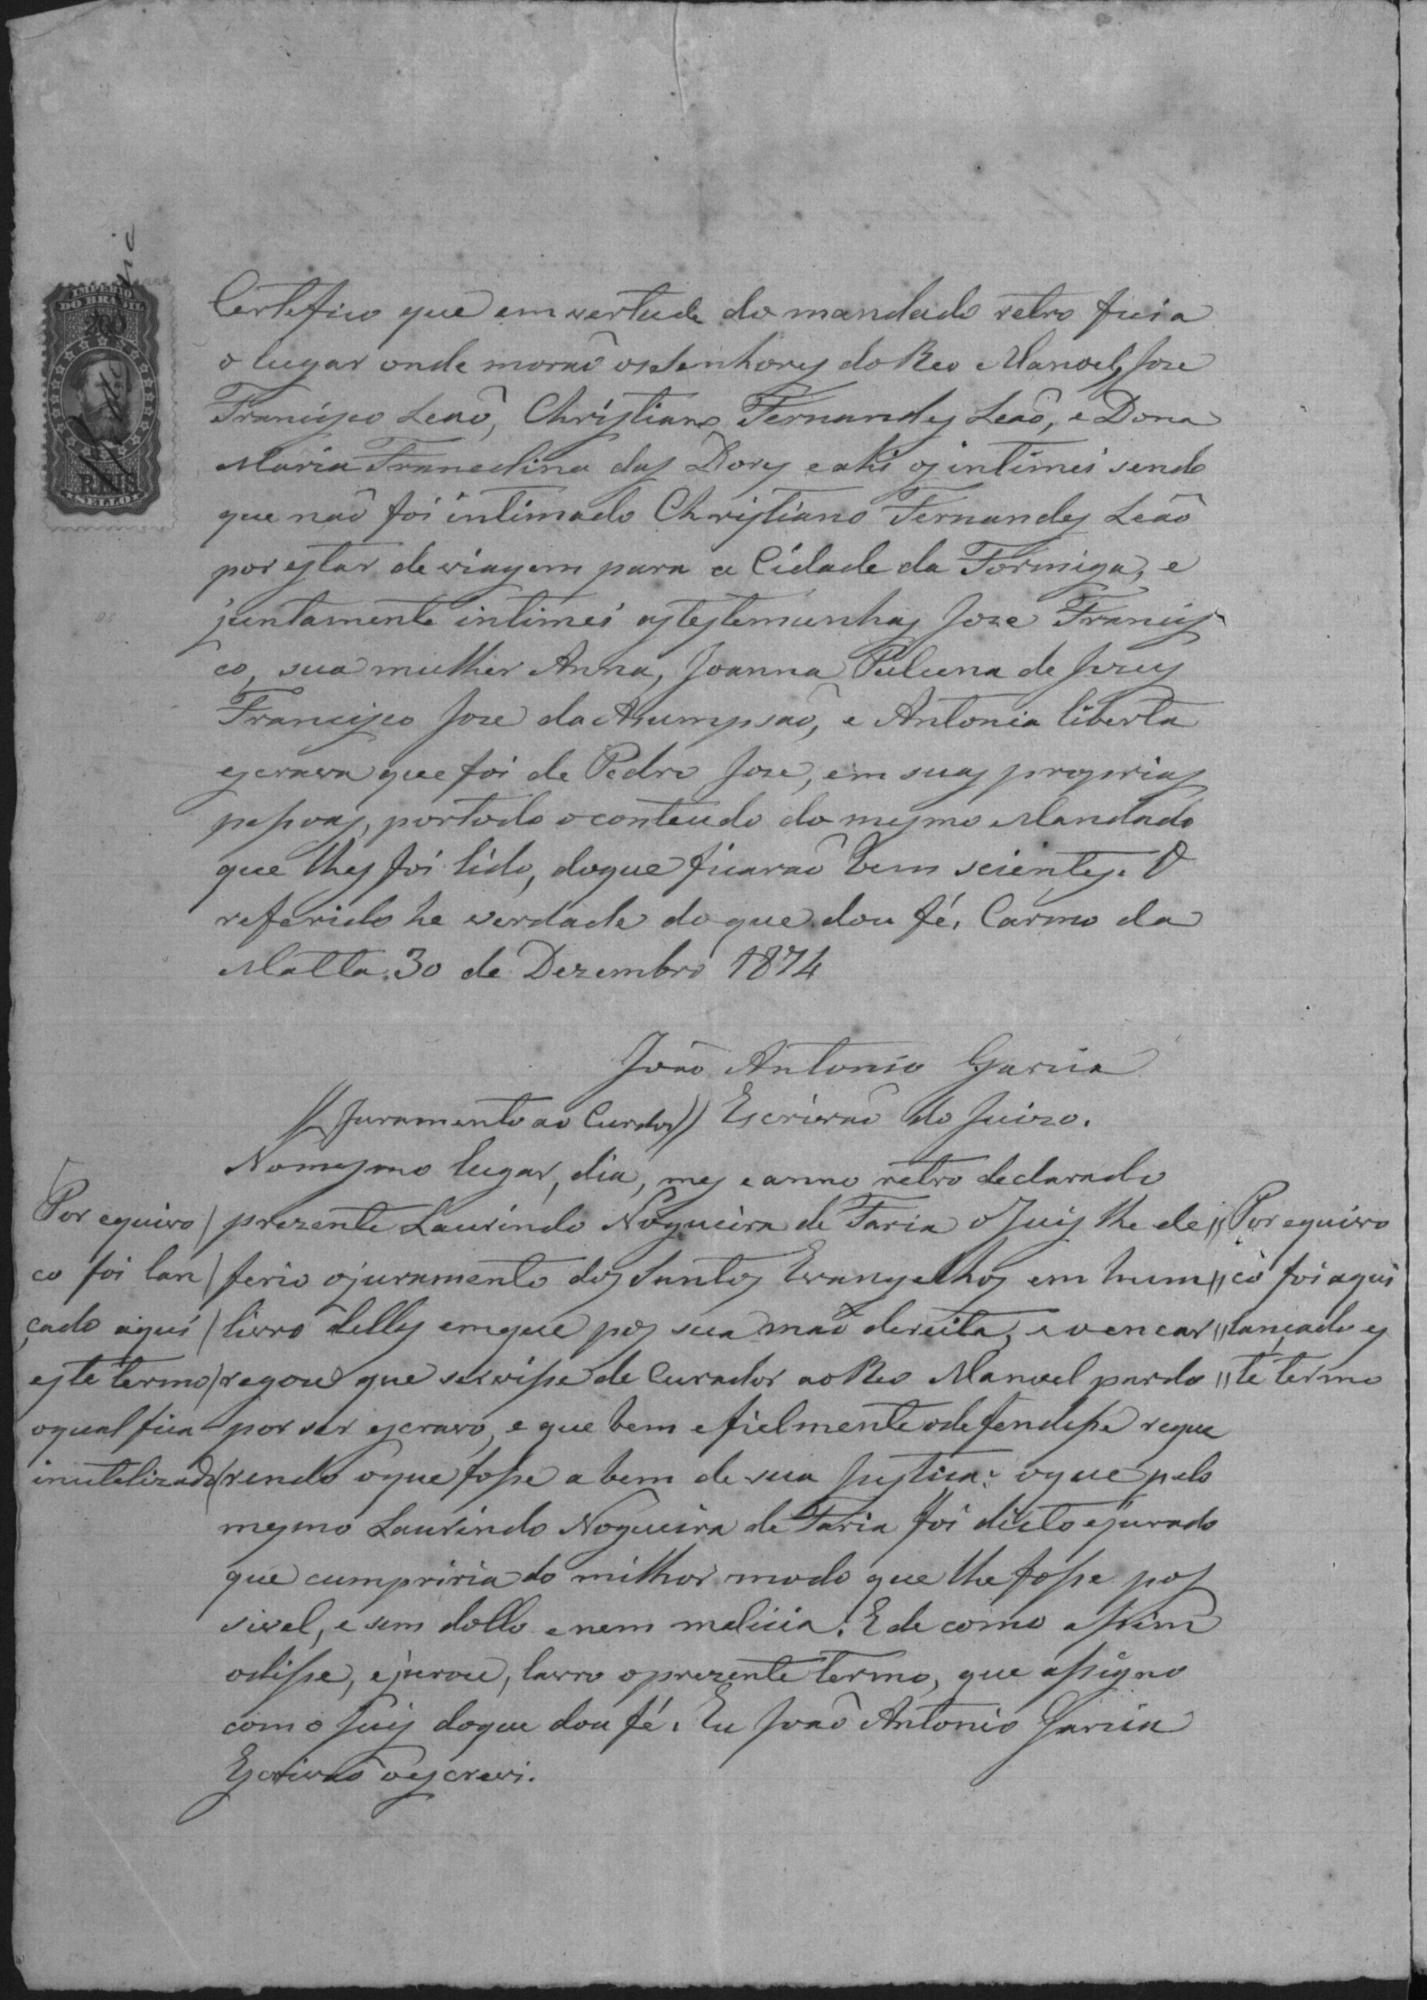 IMPERIO
DO BRASIL
200
REIS
SELLO
Certefico que em vertude do mandado retro fui a
o lugar onde moraõ os Senhores do Reo Manoel, Joze
Francisco Leaõ, Christiano Fernandes Leaõ, e Dona
Maria Francelina das Dores e ahi os intimei sendo
que naõ foi intimado Christiano Fernandes Leaõ
por estar de viagem para a Cidade da Formiga, e
juntamente intimei as testemunhas Joze Francis
co, sua mulher Anna, Joanna de Jezus
Francisco Joze da Asumpsaõ, e Antonia liberta
escrava que foi de Pedro Joze, em suas proprias
pessoas, por todo o conteudo do mesmo Mandado
que lhes foi lido, do que ficaraõ bem scientes. O
referido he verdade do que dou fé. Carmo da
Matta. 30 de Dezembro 1874
João Antonio Garcia
Escrivaõ do Juizo.
// Juramento ao Curdor //
No mesmo lugar, dia, mes e anno retro declarado
prezente Laurindo Nogueira de Faria o Juis lhe de
ferio o juramento dos Santos Evangelhos em hum
livro delles em que pos sua maõ dereita, e o encar
regou que servisse de Curador ao Reo Manoel pardo
por ser escravo, e que bem e fielmente o defendesse reque
rendo o que fosse a bem de sua Justica: o que pelo
mesmo Laurindo Nogueira de Faria foi dicto e jurado
que cumpriria do milhor modo que lhe fosse pos
sivel, e sem dollo e nem malicia. E de como assim
o disse, e jurou, lavro o prezente termo, que assigno
com o Juis do que dou fé. Eu Joaõ Antonio Garcia
Escrivaõ o escrevi.
Por equivo
co foi lan
çado aqui
este termo
o qual fica
inutelizado
Por equivo
co foi aqui
lançado es
te termo